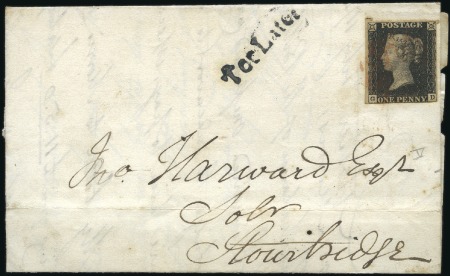 Too Late
POSTAGE
ONE PENNY
Jno. Harward Esqr
Solr
Stourbridge